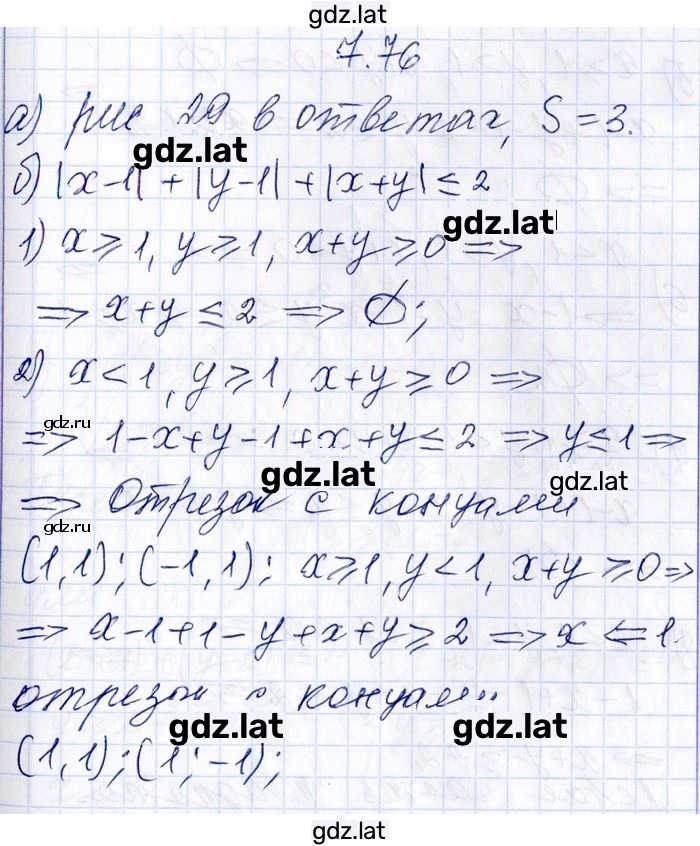 gdz.lat
7.76
а) рис 29 в ответах, S = 3.
gdz.lat
б) |x-1| + |y-1| + |x+y| ≤ 2
gdz.lat
1) x ⩾ 1, y ⩾ 1, x+y ⩾ 0 =>
=> x+y ≤ 2 => ∅;
2) x < 1, y ⩾ 1, x+y ⩾ 0 =>
gdz.ru
=> 1-x+y-1+x+y ≤ 2 => y ≤ 1 =>
gdz.lat
gdz.lat
=> Отрезок с концами
gdz.ru
(1,1); (-1,1); x ⩾ 1, y < 1, x+y ⩾ 0 =>
=> x-1+1-y+x+y ⩾ 2 => x <= 1.
отрезок с концами
gdz.lat
gdz.lat
(1,1); (1;-1);
gdz.lat